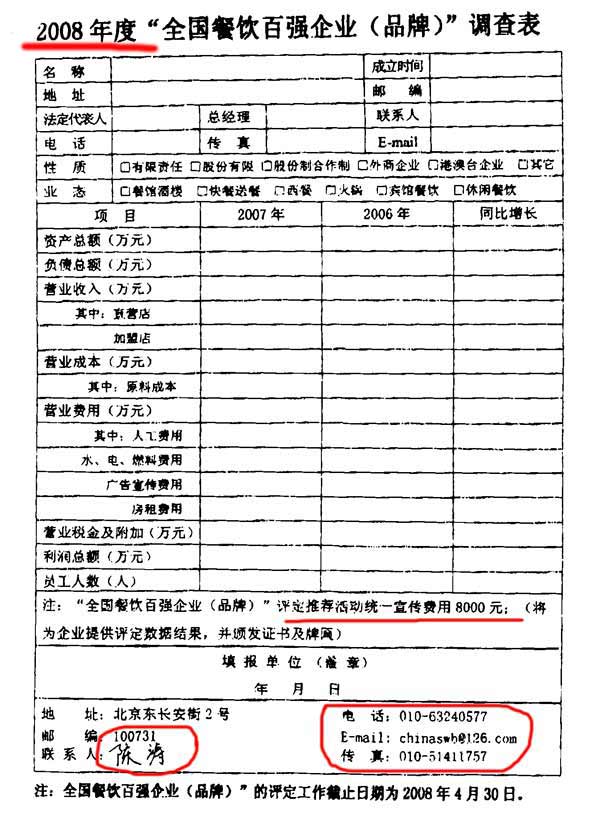 2008 年度“全国餐饮百强企业（品牌）”调查表
名 称 成立时间
地 址 邮 编
法定代表人 总经理 联系人
电 话 传 真 E-mail
性 质 □有限责任 □股份有限 □股份制合作制 □外商企业 □港澳台企业 □其它
业 态 □餐馆酒楼 □快餐送餐 □西餐 □火锅 □宾馆餐饮 □休闲餐饮
项 目 2007 年 2006 年 同比增长
资产总额（万元）
负债总额（万元）
营业收入（万元）
其中：直营店
加盟店
营业成本（万元）
其中：原料成本
营业费用（万元）
其中：人工费用
水、电、燃料费用
广告宣传费用
房租费用
营业税金及附加（万元）
利润总额（万元）
员工人数（人）
注：“全国餐饮百强企业（品牌）”评定推荐活动统一宣传费用 8000 元；（将
为企业提供评定数据结果，并颁发证书及牌匾）
填报单位（盖章）
年 月 日
地 址：北京东长安街 2 号 电 话：010-63240577
邮 编：100731 E-mail：chinaswb@126.com
联系人：陈涛 传 真：010-51411757
注：全国餐饮百强企业（品牌）”的评定工作截止日期为 2008 年 4 月 30 日。